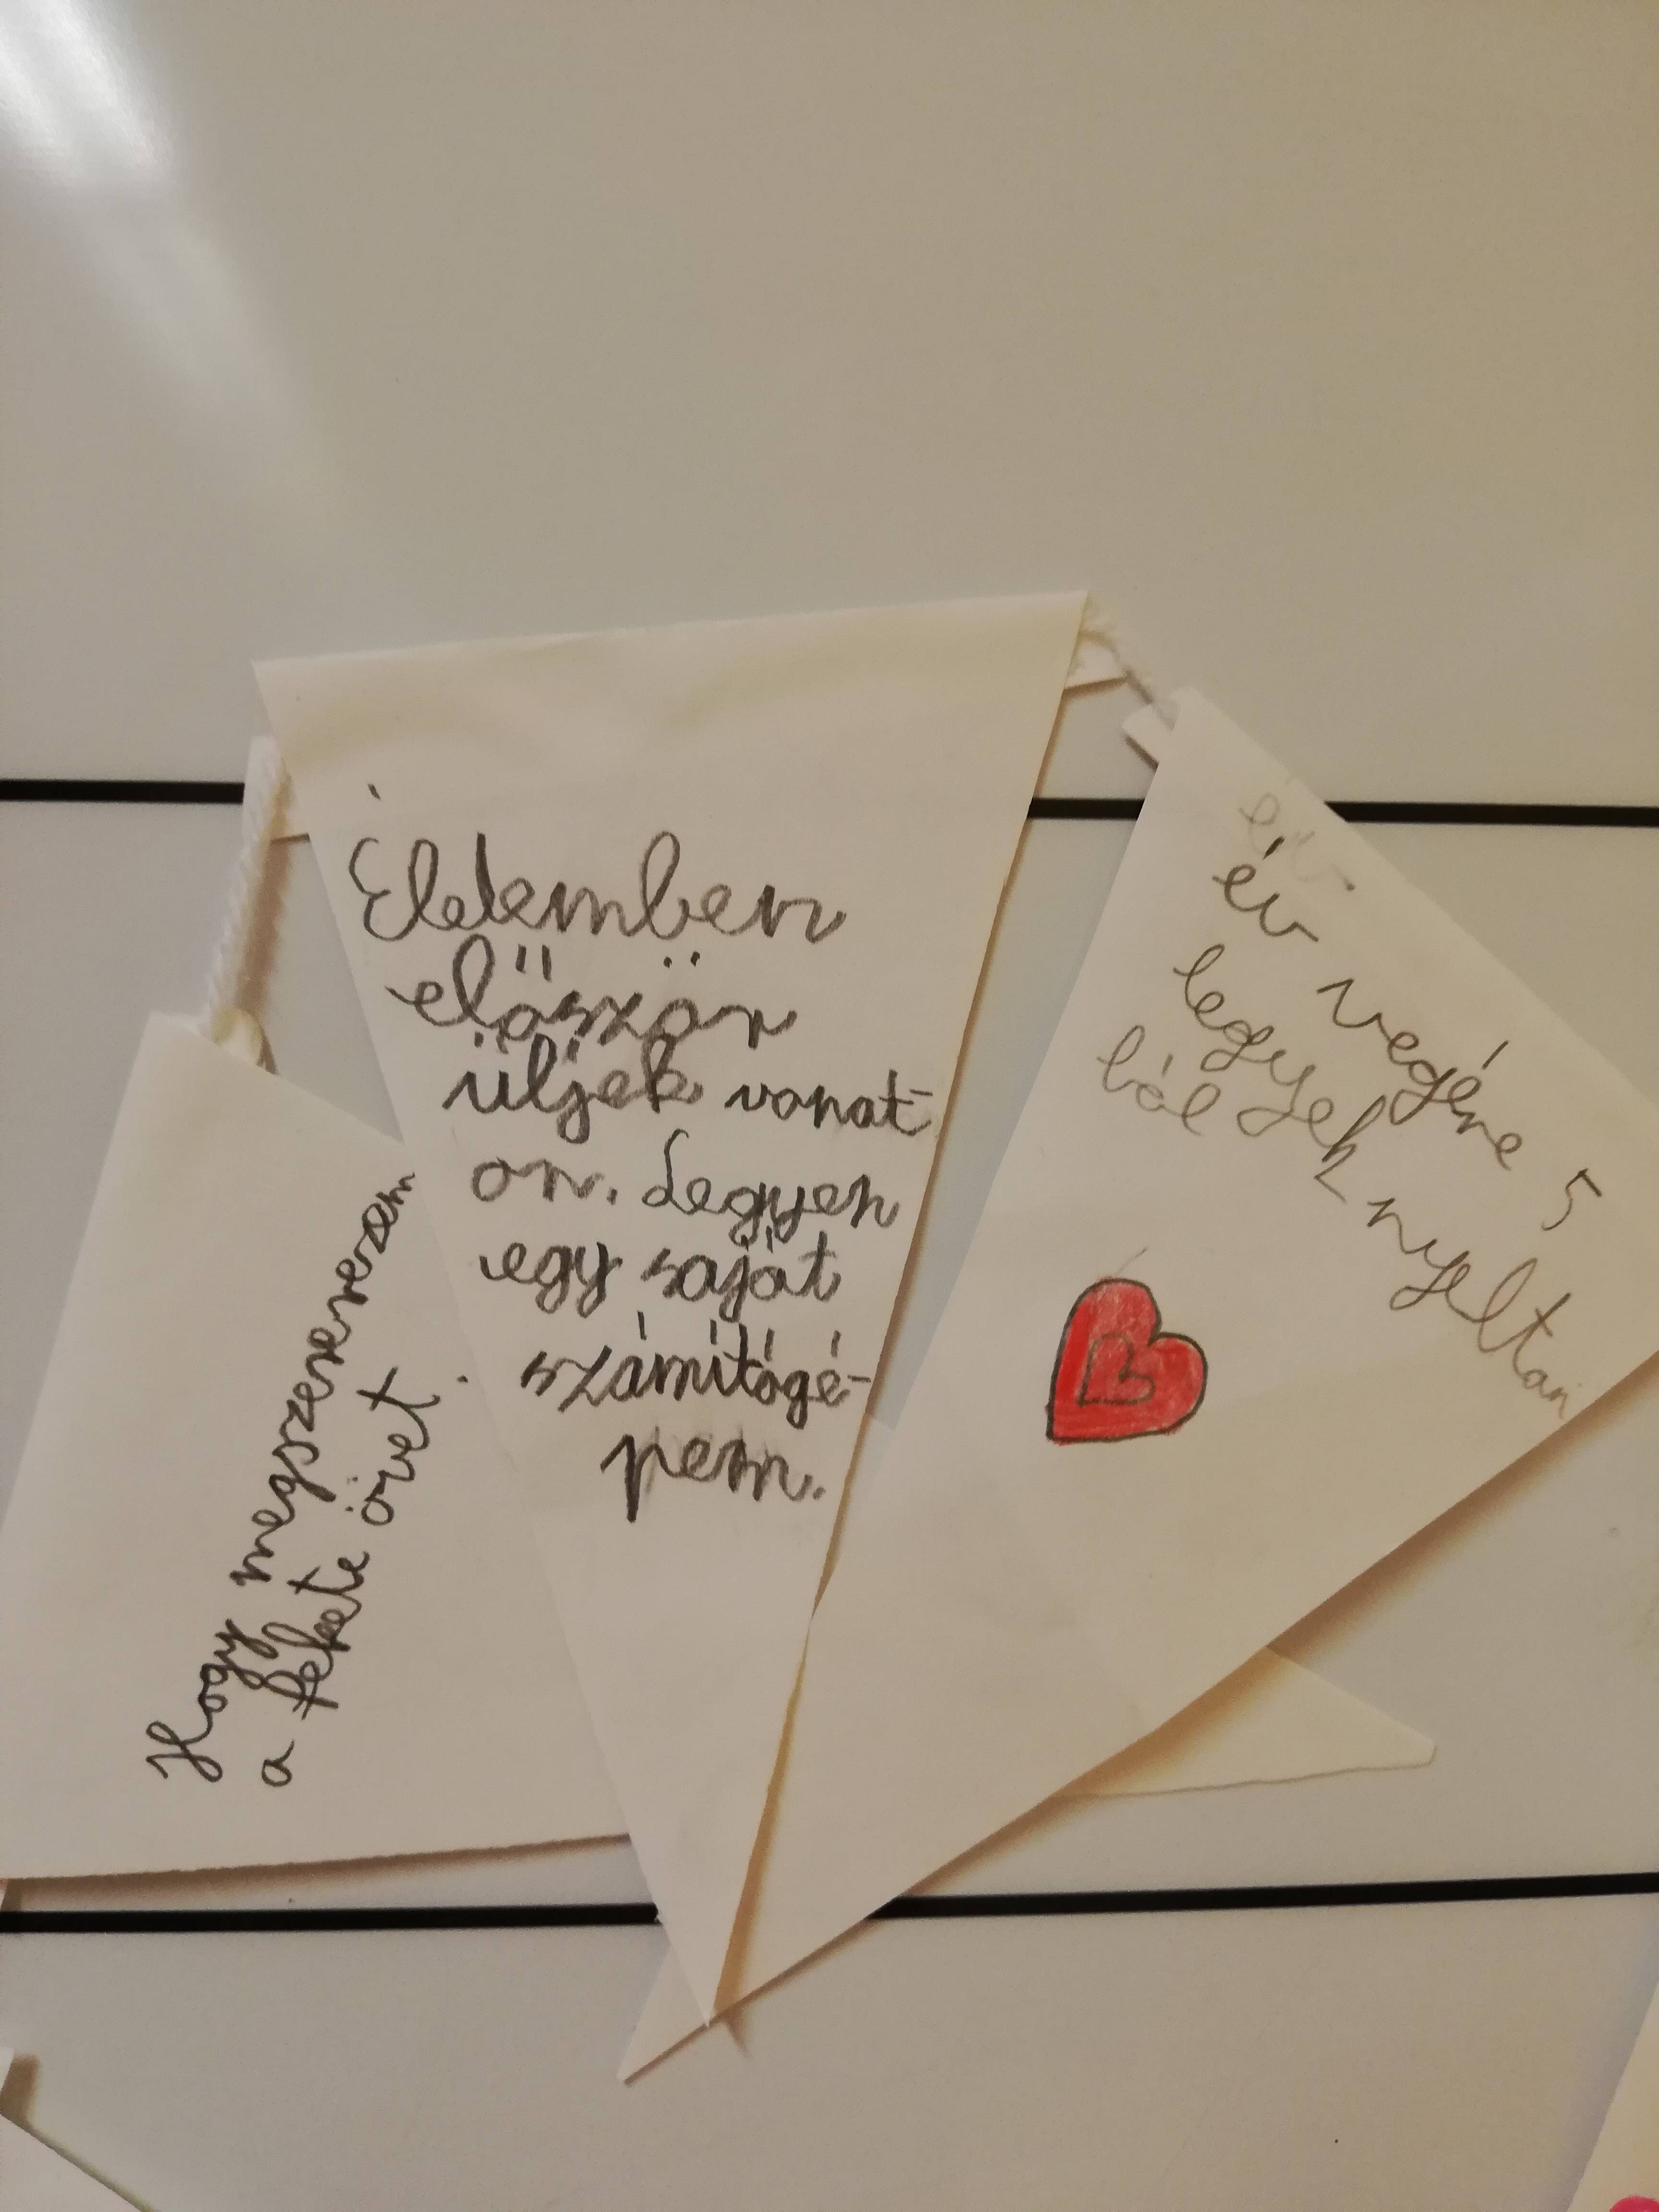 Hogy megszerezem
a fekete övet
Életemben
először
üljek vonat-
on. Legyen
egy saját
számítógé-
pem.
év
év végére 5
legyek nyeltan
ból